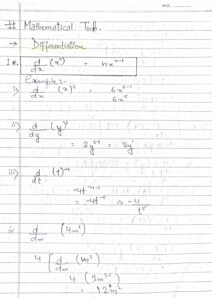 # Mathematical Tools.
→ Differentiation
1※. d/dx (xⁿ) = nxⁿ⁻¹
Examples:-
i) d/dx (x)⁶ = 6x⁶⁻¹
6x⁵
ii) d/dy (y)²
= 2y²⁻¹ = 2y¹
iii) d/dt (t)⁻⁴
-4t⁻⁴⁻¹
= -4t⁻⁵ ⇒ -4/t⁵
iv d/dm (4m³)
4 [d/dm (m³)
4 (3m³⁻¹)
= 12m²